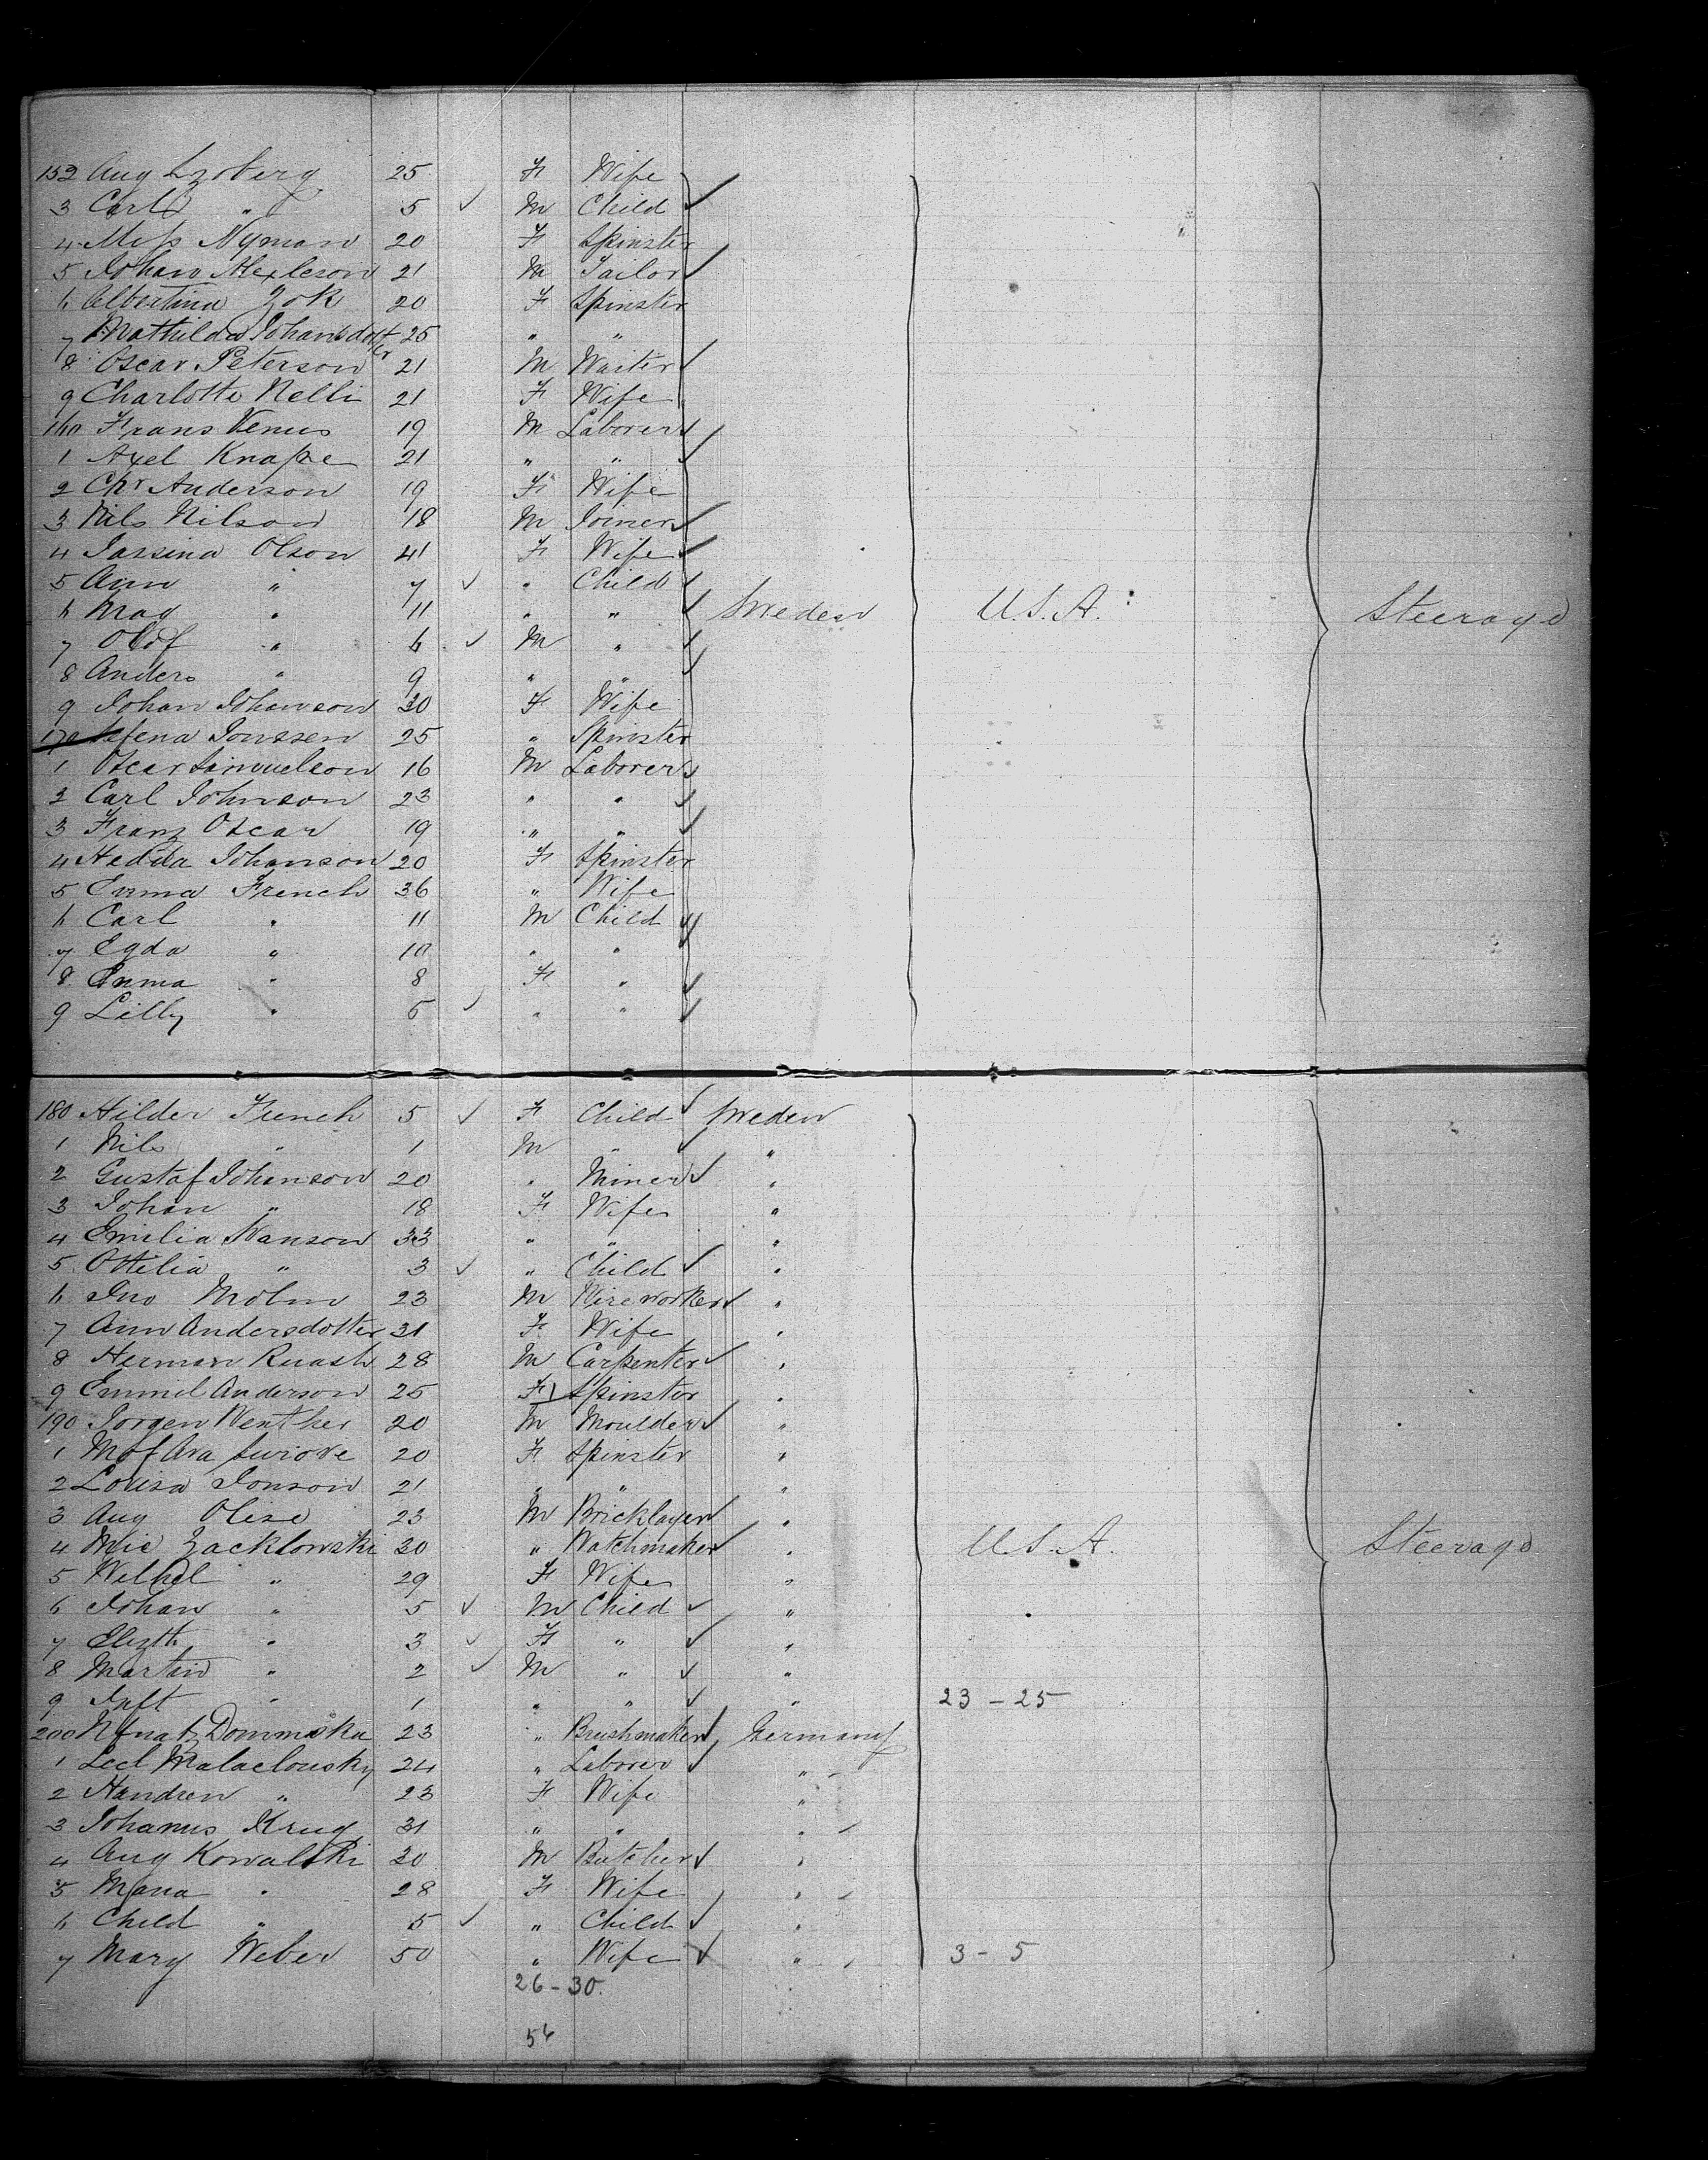 152 Aug Lzoberg 25 F Wife
3 Carl " 5 ✓ M Child ✓
4 Miss Nyman 20 F Spinster
5 Johan Alexleson 21 M Tailor ✓
6 Albertina Zok 20 F Spinster
7 Mathilda Johansdotter 25 " "
8 Oscar Peterson 21 M Waiter ✓
9 Charlotte Nelli 21 F Wife
160 Frans Venus 19 M Laborer ✓
1 Axel Knape 21 " " ✓
2 Chr Anderson 19 F Wife
3 Nils Nilson 18 M Joiner ✓
4 Jassina Olson 41 F Wife ✓
5 Ann " 7 ✓ " Child ✓
6 Mag " 11 " " ✓ Sweden U.S.A. Steerage
7 Olof " 6 ✓ M " ✓
8 Anders " 9 " " ✓
9 Johan Johanson 30 F Wife
170 Jonssen 25 " Spinster
1 Oscar Samuelson 16 M Laborer ✓
2 Carl Johnson 23 " " ✓
3 Franz Oscar 19 " " ✓
4 Hedda Johanson 20 F Spinster
5 Emma French 36 " Wife
6 Carl " 11 M Child ✓
7 Egda " 10 " "
8 Emma " 8 F " ✓
9 Lilly " 6 ✓ " " ✓
180 Hilder French 5 ✓ F Child ✓ Sweden
1 Nils " 1 M " ✓ "
2 Gustaf Johanson 20 " Miner ✓ "
3 Johan " 18 F Wife "
4 Emilia Swanson 33 " " "
5 Ottilia " 3 ✓ " Child ✓ "
6 Jno Molm 23 M Wireworker ✓ "
7 Ann Andersdotter 31 F Wife "
8 Herman Ruash 28 M Carpenter ✓ "
9 Emmil Anderson 25 F Spinster "
190 Jorgen Wenther 20 M Moulder ✓ "
1 20 F Spinster "
2 Louisa Jonson 21 " " "
3 Aug Olise 23 M Bricklayer ✓ "
4 Mic Zacklowski 30 " Watchmaker ✓ " U.S.A. Steerage
5 Wilhel " 29 F Wife "
6 Johan " 5 ✓ M Child ✓ "
7 Elizth " 3 ✓ F " ✓ "
8 Martin " 2 ✓ M " ✓ "
9 Inft " 1 " " ✓ " 23 - 25
200 Dommska 23 " Brushmaker ✓ Germany
1 Lecl Malaclousky 24 " Laborer ✓ "
2 Handren " 23 F Wife "
3 Johanus Krug 31 " " "
4 Aug Kowalski 30 M Butcher ✓ "
5 Mana " 28 F Wife "
6 Child " 5 ✓ " Child ✓ "
7 Mary Weber 50 " Wife ✓ " 3 - 5
26 - 30
56